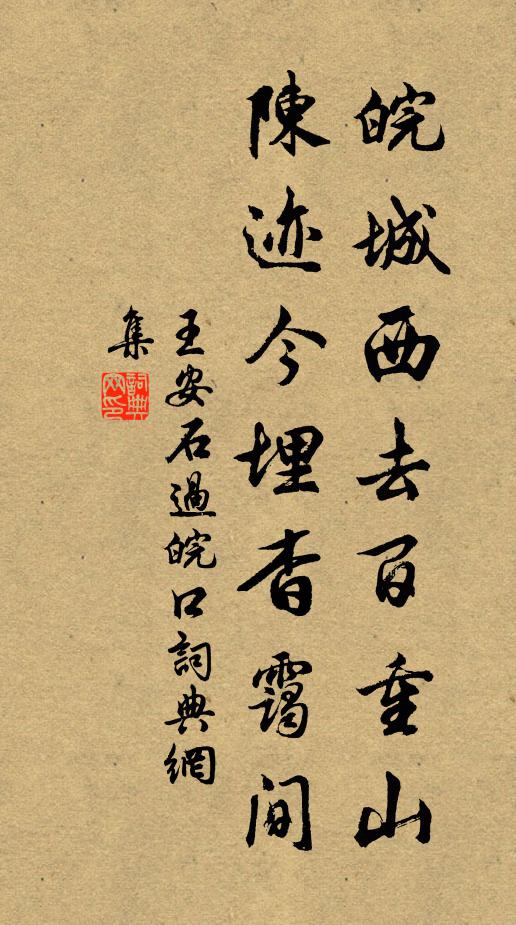 皖城西去百重山
陳迹今埋杳靄間
王安石過皖口詞典網
集
詞典網印